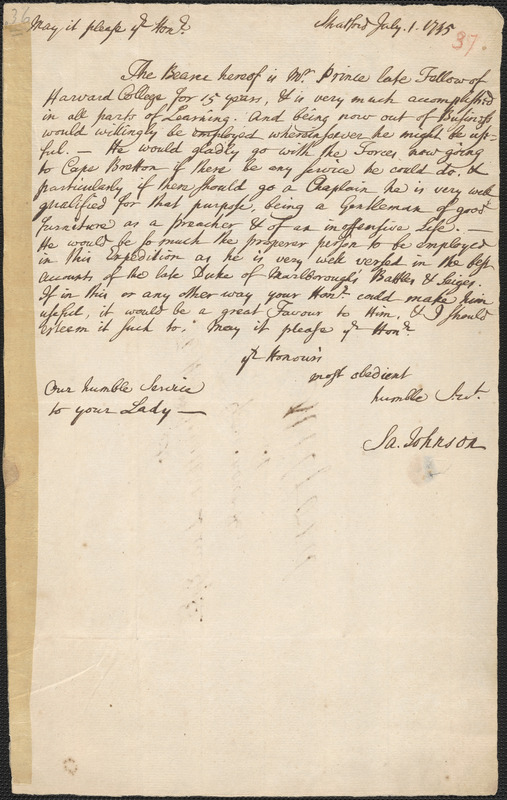 36
May it please yr. Honr. Stratford July. 1. 1745
37.
The Bearer hereof is Mr. Prince late Fellow of
Harvard College for 15 years, & is very much accomplished
in all parts of Learning. And being now out of Business
would willingly be employed wherein soever he might be use-
ful. — He would gladly go with the Forces, now going
to Cape Bretton if there be any service he could do, &
particularly if there should go a Chaplain he is very well
qualified for that purpose, being a Gentleman of good
furniture as a preacher & of an inoffensive Life. —
He would be so much the properer person to be employed
in this Expedition as he is very well versed in the best
accounts of the late Duke of Marlborough's Battles & Seiges.
If in this or any other way your Honr. could make him
useful, it would be a great Favour to Him, & I should
esteem it such to, May it please yr. Honr.
yr. Honour's
most obedient
humble Servt.
Our humble Service
to your Lady —
Sa. Johnson